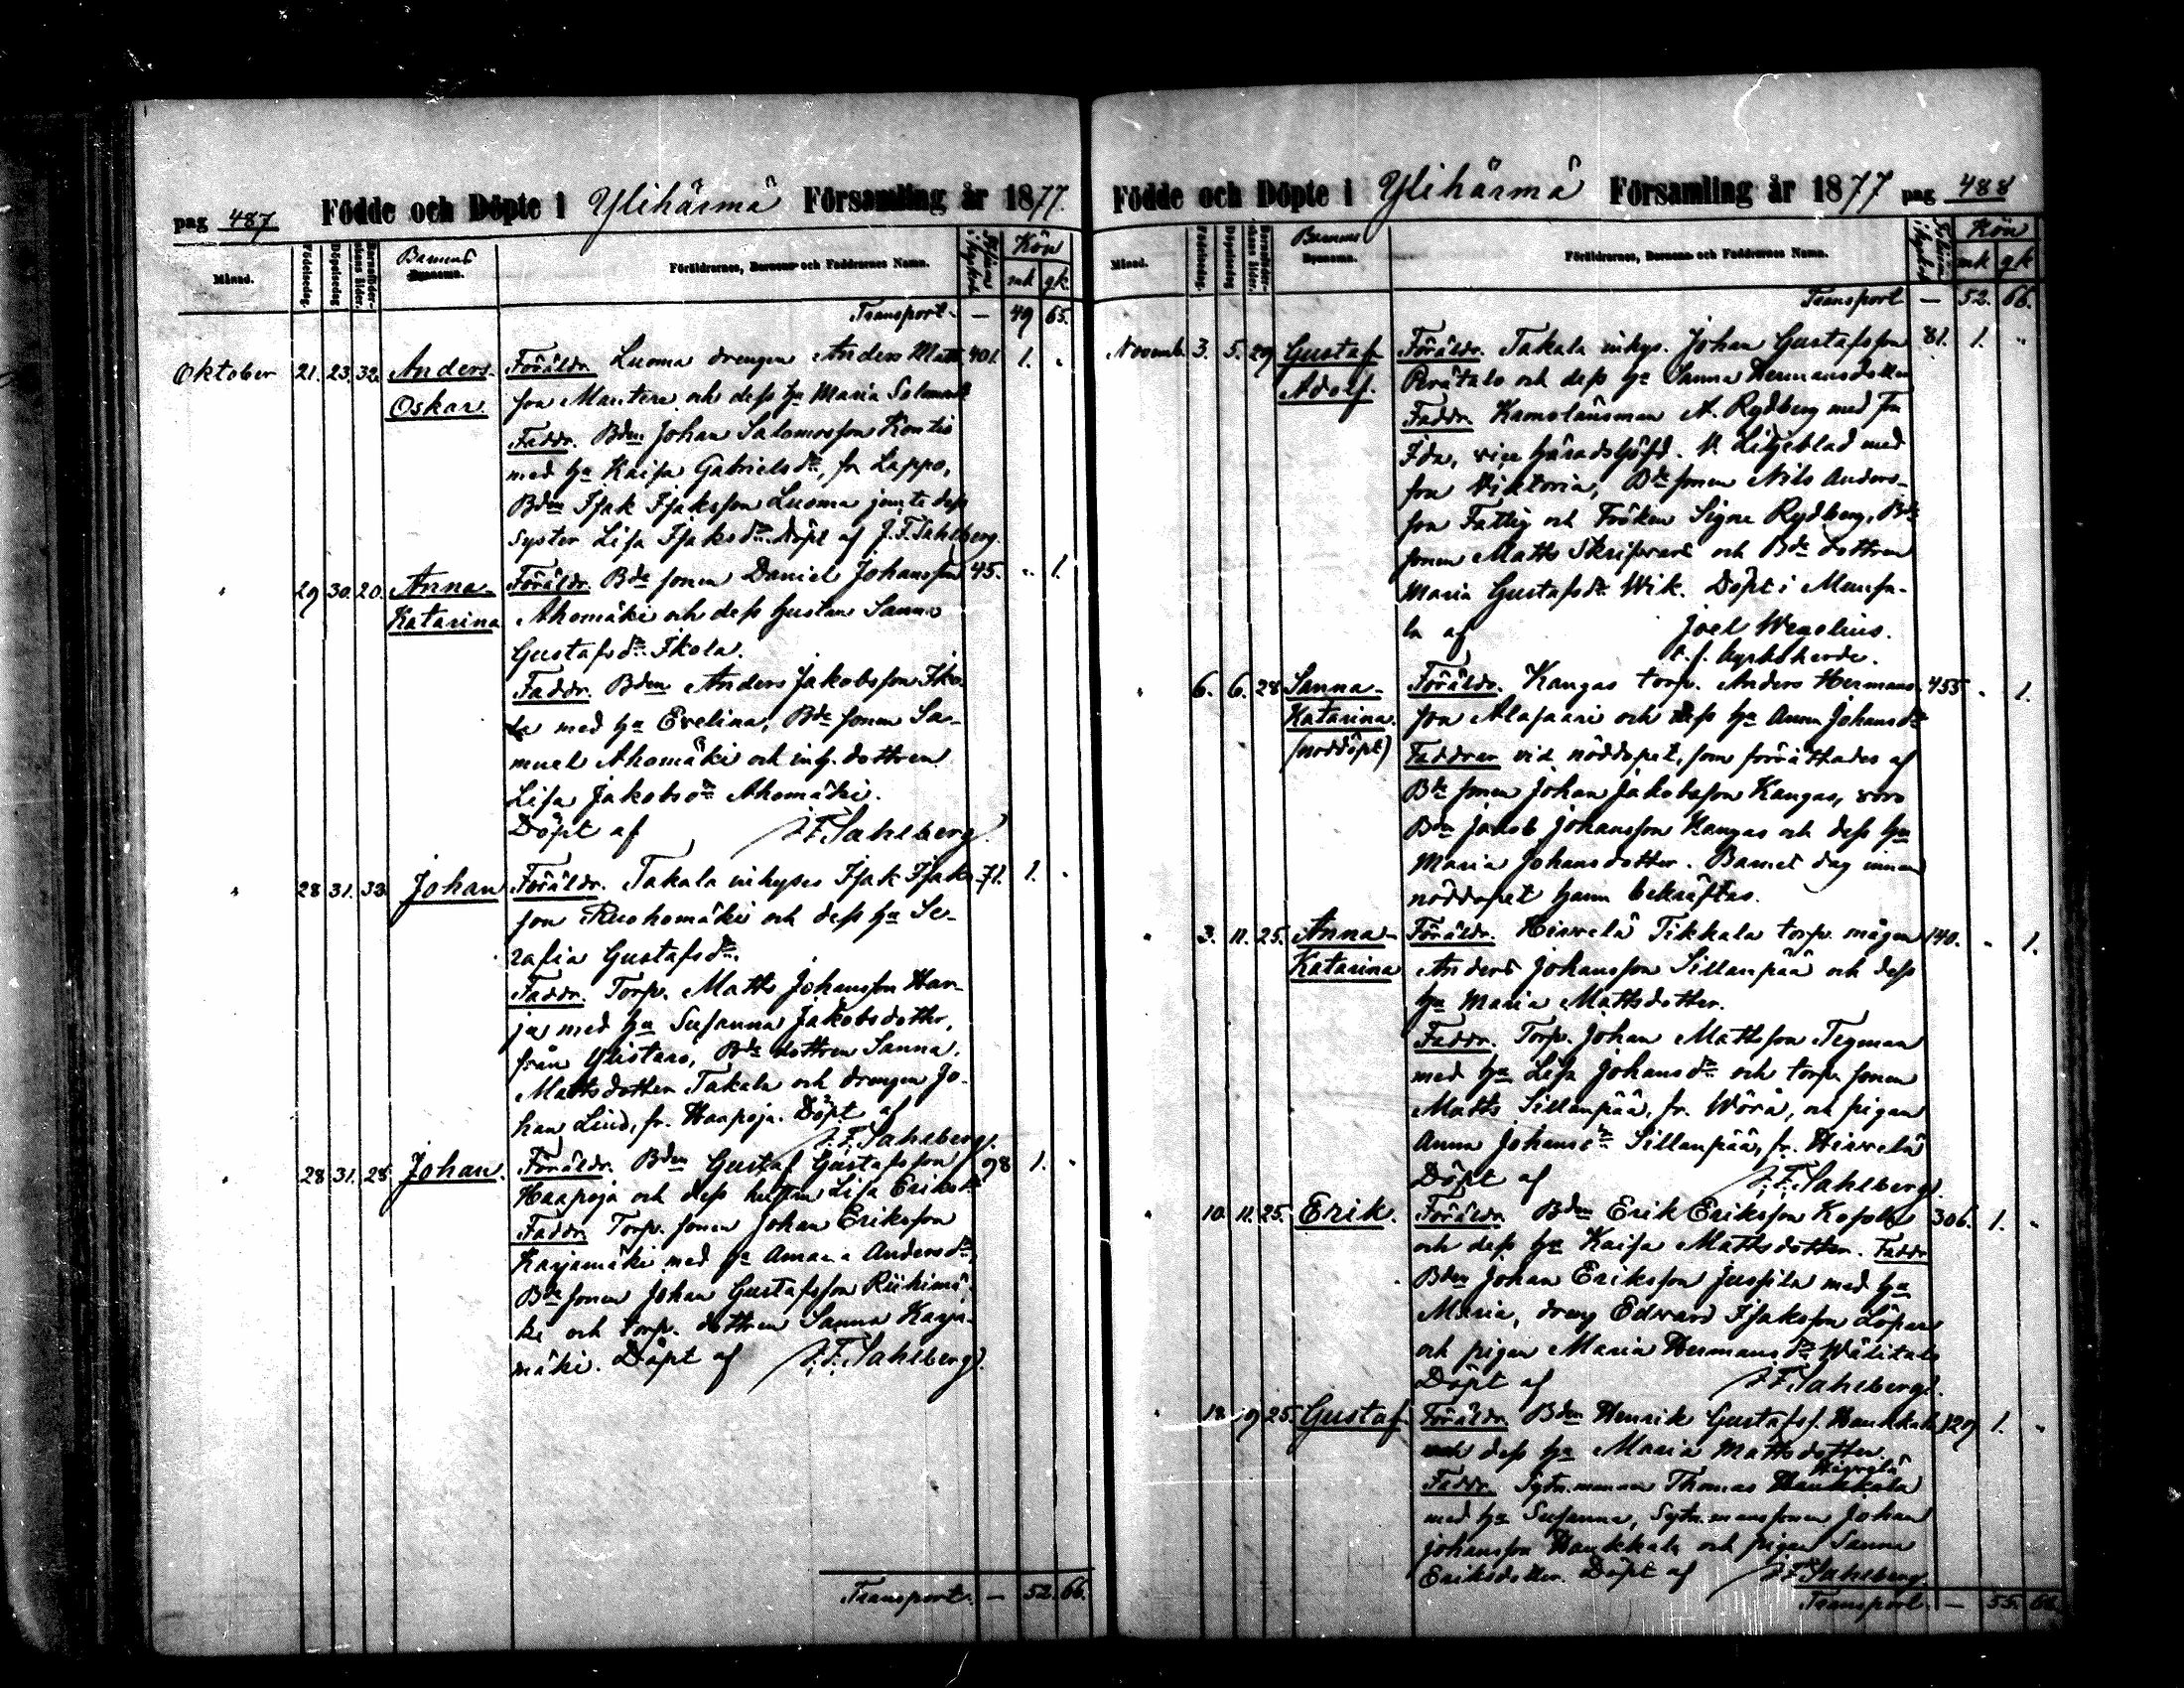 pag 487. Födde och Döpte i Ylihärmä Församling år 1877.
Månad. Födelsedag. Döpelsedag Barnens Föräldrarnes, Barnens och Faddrarnes Namn. Kön
mk gk.
Transport. — 49 65.
Oktober 21. 23. 32. Anders- Föräldr. Luoma drengen Anders Matts- 401. 1. "
Oskar. son Mantere och dess hu Maria
Faddr. Bdn Johan Salomosson Kontio
med hu Kaisa Gabrielsdr, fr Lappo,
Bdn Isak Isaksson Luoma jemte dess
Syster Lisa Isaksdr. Döpt af J. F. Sahlberg.
" 29 30. 20. Anna- Föräldr. Bde sonen Daniel Johansson 45. " 1.
Katarina Ahomäki och dess hustru Sanna
Gustafsdr Ikola.
Faddr. Bdn Anders Jakobsson Iko-
la med hu Evelina, Bde sonen Sa-
muel Ahomäki och inh. dottren
Lisa Jakobsdr Ahomäki.
Döpt af J. F. Sahlberg.
" 28 31. 33. Johan Föräldr. Takala inhyses Isak Isaks- 71. 1. "
son Ruohomäki och dess hu Se-
rafia Gustafsdr.
Faddr. Torp. Matts Johansson Har-
ja med hu Susanna Jakobsdotter,
från Ylistaro, Bde dottren Sanna
Mattsdotter Takala och drengen Jo-
han Lind, fr. Haapoja. Döpt af
J. F. Sahlberg.
" 28 31. 28. Johan. Föräldr. Bdn Gustaf Gustafsson 98 1. "
Haapoja och dess hustru Lisa Eriksdr
Faddr. Torp. sonen Johan Eriksson
Karjamäki med hu Amanda Andersdr,
Bde sonen Johan Gustafsson Riihimä-
ki och torp. dottren Sanna Karja-
mäki. Döpt af J. F. Sahlberg.
Transport. — 52. 66.
Födde och Döpte i Ylihärmä Församling år 1877 pag 488
Månad. Födelsedag. Döpelsedag Barnens Föräldrarnes, Barnens och Faddrarnes Namn. Kön
mk gk
Transport — 52. 66.
Novemb. 3. 5. 29 Gustaf Föräldr. Takala inhys. Johan Gustafsson 81. 1. "
Adolf. Perätalo och dess hu Sanna Hermansdotter
Faddr. Kronolänsman A. Rydberg med fru
Ida, vice häradshöfd. V. Liljeblad med
fru Viktoria, Bde sonen Nils Anders-
son Fattig och Fröken Signe Rydberg, Bde
sonen Matts Skrifvars och Bde dottren
Maria Gustafsdr Wik. Döpt i Munsa-
la af Joel Wegelius.
t. f. kyrkoherde.
" 6. 6. 28 Sanna- Föräldr. Kangas torp. Anders Hermans- 455 " 1.
Katarina. son Alasaari och dess hu Anna Johansdr
(nöddöpt) Faddrar vid nöddopet, som förrättades af
Bde sonen Johan Jakobsson Kangas, voro
Bdn Jakob Johansson Kangas och dess hu
Maria Johansdotter. Barnet dog innan
nöddopet hann bekräftas.
" 3. 11. 25. Anna- Föräldr. Hirvelä Tikkala torp. mågen 140. " 1.
Katarina Anders Johansson Sillanpää och dess
hu Maria Mattsdotter.
Faddr. Torp. Johan Mattsson Tegman
med hu Lisa Johansdr och torp. sonen
Matts Sillanpää, fr. Wörå, och pigan
Anna Johansdr Sillanpää, fr. Hirvelä
Döpt af J. F. Sahlberg.
" 10. 11. 25. Erik. Föräldr. Bdn Erik Eriksson Kosola 306. 1. "
och dess hu Kaisa Mattsdotter. Faddr
Bdn Johan Eriksson Jussila med hu
Maria, dreng Edvard Isaksson Löpare
och pigan Maria Hermansdr Wälitalo
Döpt af J. F. Sahlberg.
" 18. 19 25. Gustaf. Föräldr. Bdn Henrik Gustafss. Haukkala 129 1. "
och dess hu Maria Mattsdotter.
Hirvelä
Faddr. Sytn.mannen Thomas Haukkala
med hu Susanna, Sytn.manssonen Johan
Johansson Haukkala och pigan Sanna
Eriksdotter. Döpt af J. F. Sahlberg.
Transport. — 55. 68.